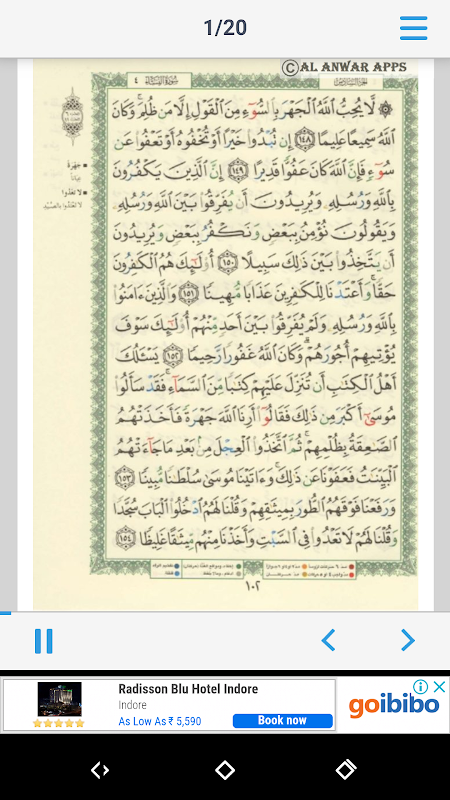 1/20
Ⓒ AL ANWAR APPS
سُورَةُ النِّسَاء ٤
الجزء السادس
۞ لَّا يُحِبُّ ٱللَّهُ ٱلْجَهْرَ بِٱلسُّوٓءِ مِنَ ٱلْقَوْلِ إِلَّا مَن ظُلِمَ ۚ وَكَانَ
ٱللَّهُ سَمِيعًا عَلِيمًا ١٤٨ إِن تُبْدُوا۟ خَيْرًا أَوْ تُخْفُوهُ أَوْ تَعْفُوا۟ عَن
سُوٓءٍ فَإِنَّ ٱللَّهَ كَانَ عَفُوًّا قَدِيرًا ١٤٩ إِنَّ ٱلَّذِينَ يَكْفُرُونَ
بِٱللَّهِ وَرُسُلِهِۦ وَيُرِيدُونَ أَن يُفَرِّقُوا۟ بَيْنَ ٱللَّهِ وَرُسُلِهِۦ
وَيَقُولُونَ نُؤْمِنُ بِبَعْضٍ وَنَكْفُرُ بِبَعْضٍ وَيُرِيدُونَ
أَن يَتَّخِذُوا۟ بَيْنَ ذَٰلِكَ سَبِيلًا ١٥٠ أُو۟لَٰٓئِكَ هُمُ ٱلْكَٰفِرُونَ
حَقًّا ۚ وَأَعْتَدْنَا لِلْكَٰفِرِينَ عَذَابًا مُّهِينًا ١٥١ وَٱلَّذِينَ ءَامَنُوا۟
بِٱللَّهِ وَرُسُلِهِۦ وَلَمْ يُفَرِّقُوا۟ بَيْنَ أَحَدٍ مِّنْهُمْ أُو۟لَٰٓئِكَ سَوْفَ
يُؤْتِيهِمْ أُجُورَهُمْ ۗ وَكَانَ ٱللَّهُ غَفُورًا رَّحِيمًا ١٥٢ يَسْـَٔلُكَ
أَهْلُ ٱلْكِتَٰبِ أَن تُنَزِّلَ عَلَيْهِمْ كِتَٰبًا مِّنَ ٱلسَّمَآءِ ۚ فَقَدْ سَأَلُوا۟
مُوسَىٰٓ أَكْبَرَ مِن ذَٰلِكَ فَقَالُوٓا۟ أَرِنَا ٱللَّهَ جَهْرَةً فَأَخَذَتْهُمُ
ٱلصَّٰعِقَةُ بِظُلْمِهِمْ ۚ ثُمَّ ٱتَّخَذُوا۟ ٱلْعِجْلَ مِنۢ بَعْدِ مَا جَآءَتْهُمُ
ٱلْبَيِّنَٰتُ فَعَفَوْنَا عَن ذَٰلِكَ ۚ وَءَاتَيْنَا مُوسَىٰ سُلْطَٰنًا مُّبِينًا ١٥٣
وَرَفَعْنَا فَوْقَهُمُ ٱلطُّورَ بِمِيثَٰقِهِمْ وَقُلْنَا لَهُمُ ٱدْخُلُوا۟ ٱلْبَابَ سُجَّدًا
وَقُلْنَا لَهُمْ لَا تَعْدُوا۟ فِى ٱلسَّبْتِ وَأَخَذْنَا مِنْهُم مِّيثَٰقًا غَلِيظًا ١٥٤
جَهْرَةً
عيانًا
لا تَعْدُوا
١٠٢
Radisson Blu Hotel Indore
Indore
As Low As ₹ 5,590
Book now
goibibo